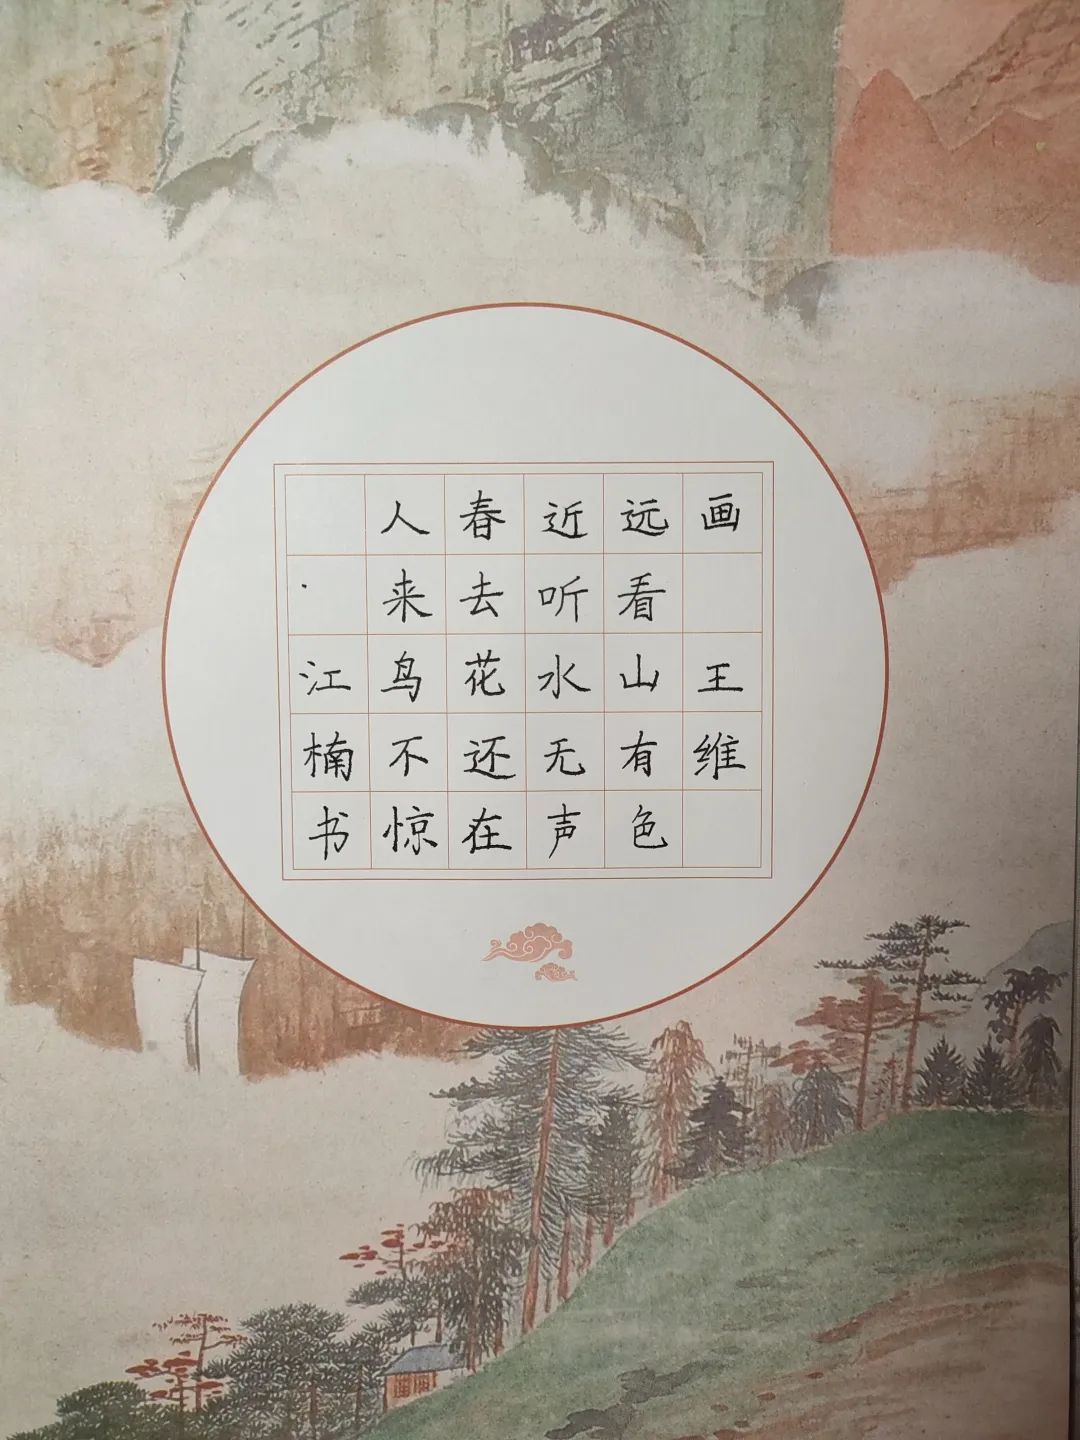 画 王维
远看山有色
近听水无声
春去花还在
人来鸟不惊
江楠书